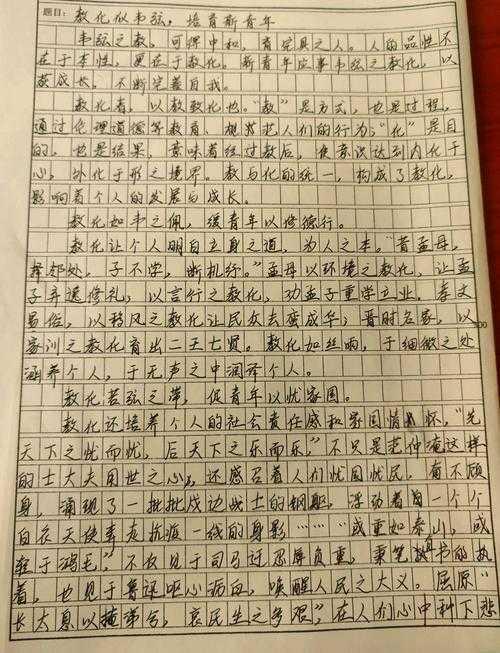 题目: 教化似韦弦,培育新青年
韦弦之教,可得中和,育完具之人。人的品性不
在于本性,更在于教化。新青年应事韦弦之教化,以
获成长,不断完善自我。
教化者,以教致化也。“教”是方式,也是过程,
通过伦理道德等教育、规范艺人们的行为;“化”是目
的,也是结果,意味着经过教后,使意识达到内化于
心,外化于形之境界。教与化的统一,构成了教化,
影响着个人的发展与成长。
教化如韦之佩,缓青年以修德行。
教化让个人明白立身之道,为人之本。“昔孟母,
择邻处,子不学,断机杼。”孟母以环境之教化,让孟
子弃逃修礼;以言行之教化,劝孟子重学立业。孝文
易俗,以移风之教化让民众去蛮成华;晋时名家,以
家训之教化育出二王七贤。教化如丝响,于细微之处
涵养个人,于无声之中润泽个人。
教化若弦之带,促青年以忧家国。
教化还培养个人的社会责任感和家国情怀,“先
天下之忧而忧,后天下之乐而乐,”不只是范仲淹这样
的士大夫用世之心,还感召着人们忧国忧民,奋不顾
身,涌现了一批批戍边战士的钢躯,浮动着自一个个
白衣天使奔走抗疫一线的身影……“或重如泰山,或
轻于鸿毛”,不仅见于司马迁忍辱负重,秉笔直书的执
着,也见于鲁迅呕心沥血,唤醒人民之大义。屈原“
长太息以掩涕兮,哀民生之多艰”,在人们心中种下悲